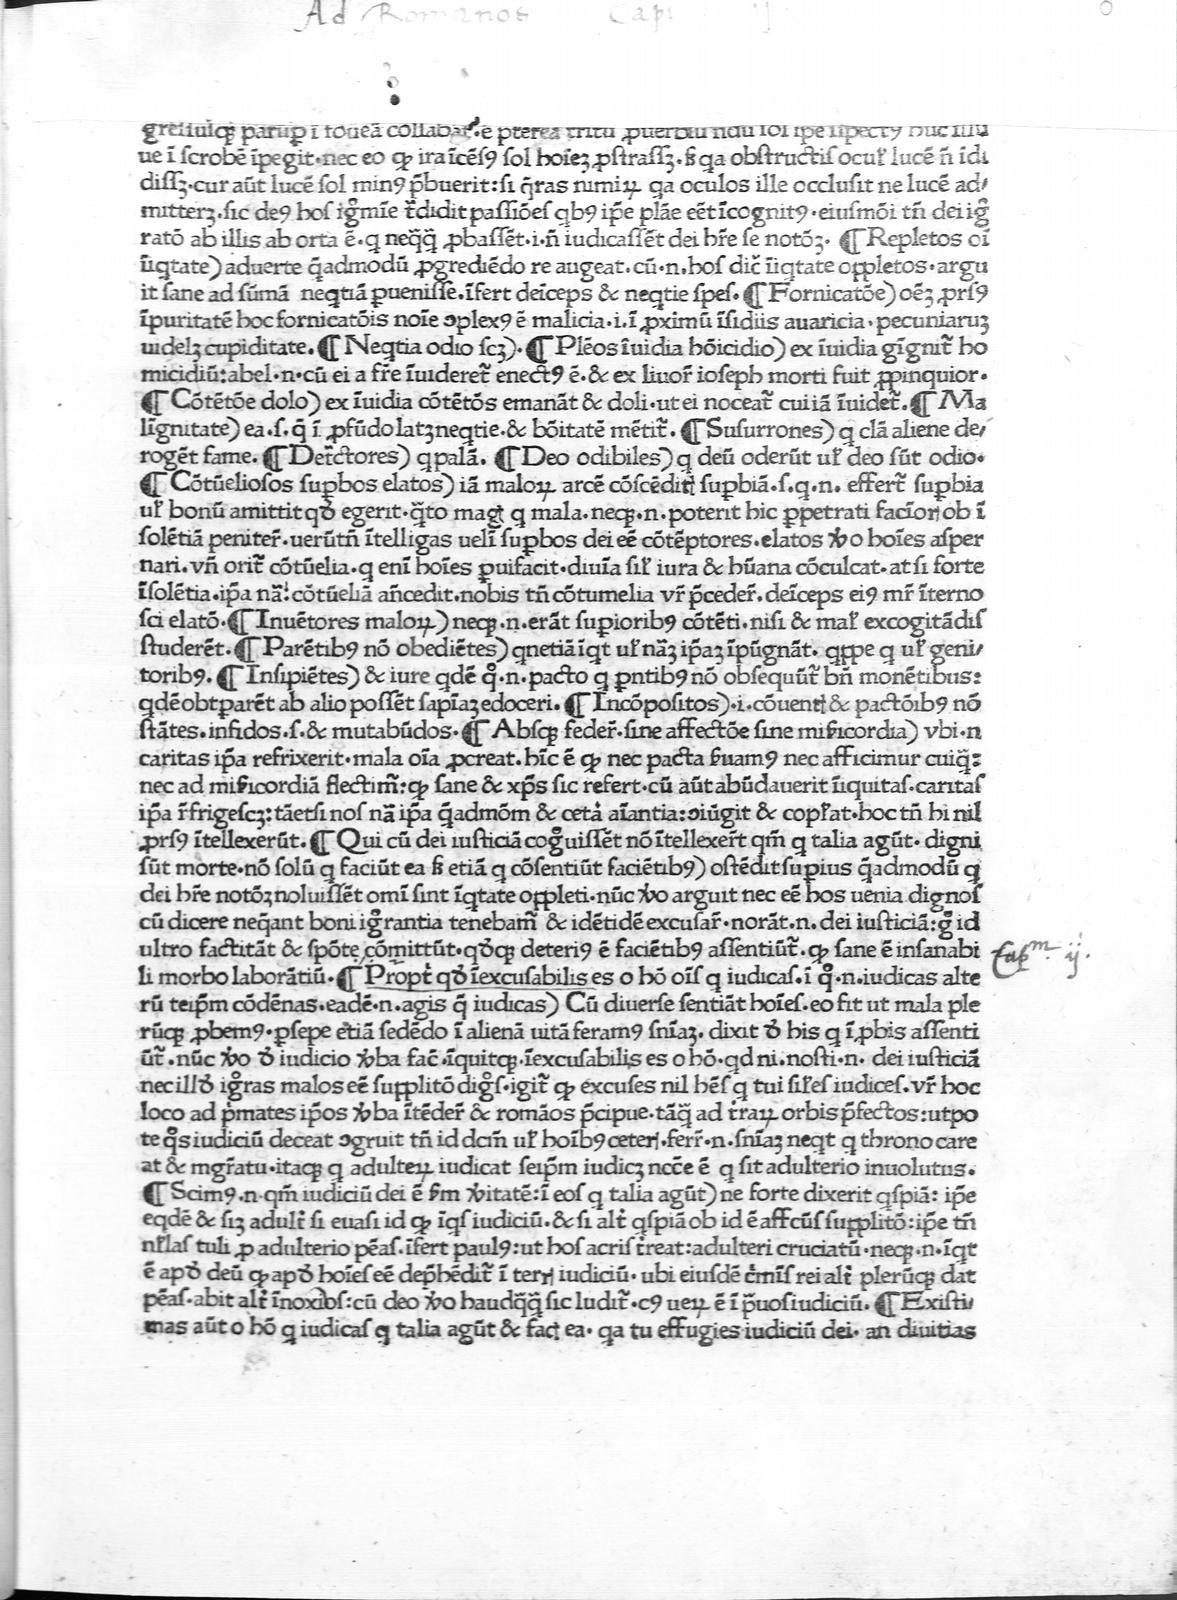 Ad Romanos Cap ij
ue ī ſcrobē īpegit·nec eo ꝙ ira īcēſꝰ ſol hoīeȝ ꝓſtraſſȝ·ſꝫ qa obſtructiſ oculꝭ lucē n̄ idi
diſſȝ·cur aūt lucē ſol minꝰ p̄buerit:ſi q̄ras nimiꝝ qa oculos ille occluſit ne lucē ad/
mitterȝ·ſic deꝰ hoſ ig̊mīe t̄didit paſſiōeſ qbꝰ ip̄e plāe eēt īcognitꝰ·eiuſmōi tn̄ dei ig̊
ratō ab illis ab orta ē·q neq̄q̄ ꝓbaſſēt·i·n̄ iudicaſſēt dei hr̄e ſe notōȝ· ¶ Repletos oī
īiqtate) aduerte q̄admodū ꝓgrediēdo re augeat·cū·n·hoſ dic̄ īiqtate oppletos·argu
it ſane ad ſūmā neqtiā ꝑueniſſe·īfert deīceps & neqtie ſpeſ·¶ Fornicatōe) oēȝ ꝓrſꝰ
īpuritatē hoc fornicatōis noīe ↄplexꝰ ē malicia·i·ī ꝓximū īſidiis auaricia·pecuniaruȝ
uidelȝ cupiditate·¶ Neqtia odio ſcȝ)·¶ Plēos īuidia hōicidio) ex īuidia gīgnit̄ ho
micidiū:abel·n·cū ei a fr̄e īuideret̄ enectꝰ ē·& ex liuor̄ ioſeph morti fuit ꝓpinquior·
¶ Cōtētōe dolo) ex īuidia cōtētōs emanāt & doli·ut ei noceat̄ cui iā īuidet̄·¶ Ma
līgnitate) ea·ſ·q̄ ī ꝓfūdo latȝ neqtie·& bōitatē mētit̄· ¶ Suſurrones) q clā aliene de/
rogēt fame·¶ Det̄ctores) q palā· ¶ Deo odibiles) q deū oderūt ulꝭ deo ſūt odio·
¶ Cōtūelioſos ſuꝑbos elatos) iā maloꝝ arcē cōſcēdit ſuꝑbiā·ſ·q·n· effert̄ ſuꝑbia
ulꝭ bonū amittit qđ egerit·q̄to mag q mala·neqꝫ·n·poterit hic ꝑpetrati facīor ob ī
ſolētiā peniter̄·uerūtn̄ ītelligas uelī ſuꝑbos dei eē cōtēptores·elatos ꝟo hoīes aſper
nari·vn̄ orit̄ cōtūelia·q enī hoīes ꝑuifacit·diuīa ſilꝭ iura & hūana cōculcat·at ſi forte
īſolētia·ip̄a nā cōtūeliā an̄cedit·nobis tn̄ cōtumelia vr̄ p̄ceder̄·deīceps eiꝰ mr̄ īterno
ſci elatō·¶ Inuētores maloꝝ) neqꝫ·n·erāt ſupioribꝰ cōtēti·niſi & malꝭ excogitādiſ
ſtuderēt·¶ Parētibꝰ nō obediētes) q netiā īqt ulꝭ nāȝ ip̄aȝ īpūgnāt· qppe q ulꝭ geni/
toribꝰ·¶ Inſipiētes) & iure qdē q̊·n·pacto q pntibꝰ nō obſequūt̄ bn̄ monētibus:
qdē obtꝑarēt ab alio poſſēt ſapīaȝ edoceri·¶ Incōpoſitos)·i·cōuent & pactōibꝰ nō
ſtātes·infidos·ſ·& mutabūdos·¶ Abſqꝫ feder̄·ſine affectōe ſine miſꝫicordia) vbi·n
caritas ip̄a refrixerit·mala oīa ꝓcreat·hīc ē ꝙ nec pacta ſꝫuamꝰ nec afficimur cuiq̄:
nec ad miſꝫicordiā flectim̄:ꝙ ſane & xp̄s ſic refert·cū aūt abūdauerit īiquitaſ·caritaſ
ip̄a r̄frigeſcȝ:tāetſi noſ nā ip̄a q̄admōm & cetꝭa aīantia:ↄiūgit & copl̄at·hoc tn̄ hi nil
ꝓrſꝰ ītellexerūt·¶ Qui cū dei iuſticiā cog̊uiſſēt nō ītellexer̄t qm̄ q talia agūt· digni
ſūt morte·nō ſolū q faciūt ea ſꝫ etiā q cōſentiūt faciētibꝰ) oſtēdit ſupius q̄admodū q
dei hr̄e notōȝ noluiſſēt omī ſint īqtate oppleti·nūc ꝟo arguit nec eē hos uenia dignoſ
cū dicere neq̄ant boni ig̊rantia tenebam̄ & idētidē excuſar̄·norāt·n· dei iuſticiā:g̊ id
ultro factitāt & ſpōte cōmittūt·qđqꝫ deteriꝰ ē faciētibꝰ aſſentiūt̄·ꝙ ſane ē inſanabi
Capm ij·
li morbo laborātiū·¶ Propt̄ qđ īexcuſabilis es o hō oīſ q iudicaſ·ī q̊·n·iudicas alte
rū teip̄m cōdēnas·eadē·n·agis q̄ iudicas) Cū diuerſe ſentiāt hoīeſ·eo fit ut mala ple
rūqꝫ ꝓbemꝰ·ꝑſepe etiā ſedēdo ī alienā uitā feramꝰ ſnīaȝ· dixit đ his q īꝓbis aſſenti
ūt̄·nūc ꝟo đ iudicio ꝟba fac̄·īquitqꝫ·īexcuſabilis es o hō·qd ni·noſti·n· dei iuſticiā
nec illđ ig̊ras malos eē ſupplitō dig̊ſ·igit̄ ꝙ excuſes nil hēſ q tui ſilꝭes iudiceſ·vr̄ hoc
loco ad p̄mates ip̄os ꝟba ītēder̄ & romāos p̄cipue·tāq̄ ad traꝝ orbis p̄fectos:utpo
te q̊s iudiciū deceat ↄgruit tn̄ id dcm̄ ulꝭ hoībꝰ ceter·ferr̄·n·ſnīaȝ neqt q throno care
at & mgr̄atu·itaqꝫ q adulteꝝ iudicat ſeip̄m iudicȝ ncc̄e ē q ſit adulterio inuolutus·
¶ Scimꝰ·n·qm̄ iudiciū dei ē ſꝫm ꝟitatē:ī eoſ q talia agūt) ne forte dixerit qſpiā: ip̄e
eqdē & ſiȝ adult̄ ſi euaſi id ꝙ īqſ iudiciū·& ſi alt̄ qſpiā ob id ē affcūſ ſupplitō:ip̄e tn̄
nl̄laſ tuli ꝓ adulterio pēaſ·īfert paulꝰ:ut hoſ acriſ t̄reat:adulteri cruciatū·neqꝫ·n·īqt
ē apđ deū ꝙ apđ hoīeſ eē dep̄hēdit̄ ī terr iudiciū· ubi eiuſdē c̄mīſ rei alt̄ plerūqꝫ dat
pēaſ·abit alt̄ īnoxiꝰſ:cū deo ꝟo haudq̄q̄ ſic ludit̄·cꝰ ueꝝ ē ī p̄uoſ iudiciū· ¶ Exiſti/
mas aūt o hō q iudicaſ q talia agūt & fac ea· qa tu effugies iudiciū dei· an diuitias